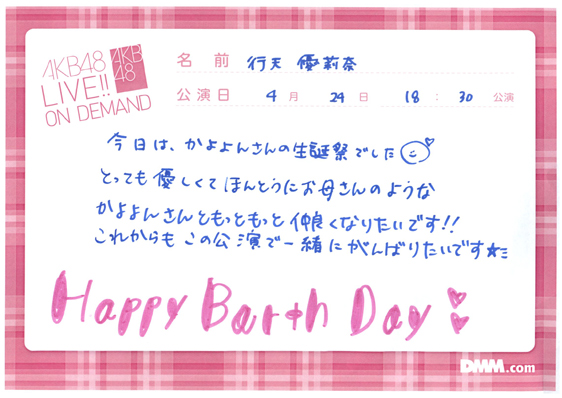 AKB48
LIVE!!
ON DEMAND
AKB
48
名前 行天 優莉奈
公演日 4月 24日 18:30 公演
今日は、かよよんさんの生誕祭でした
とっても優しくてほんとうにお母さんのような
かよよんさんともっともっと仲良くなりたいです!!
これからもこの公演で一緒にがんばりたいです☆
Happy Barth Day
DMM.com